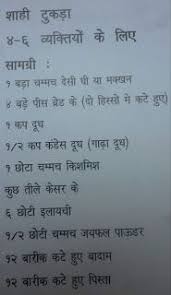 शाही टुकड़ा
४-६ व्यक्तियों के लिए
सामग्री :
१ बड़ा चम्मच देसी घी या मक्खन
४ बड़े पीस ब्रेड के (दो हिस्सो मे कटे हुए)
१ कप दूध
१/२ कप कंडेस दूध (गाढ़ा दूध)
१ छोटा चम्मच किशमिश
कुछ तीले केसर के
६ छोटी इलायची
१/२ छोटी चम्मच जायफल पाऊडर
१२ बारीक कटे हुए बादाम
१२ बारीक कटे हुए पिस्ता